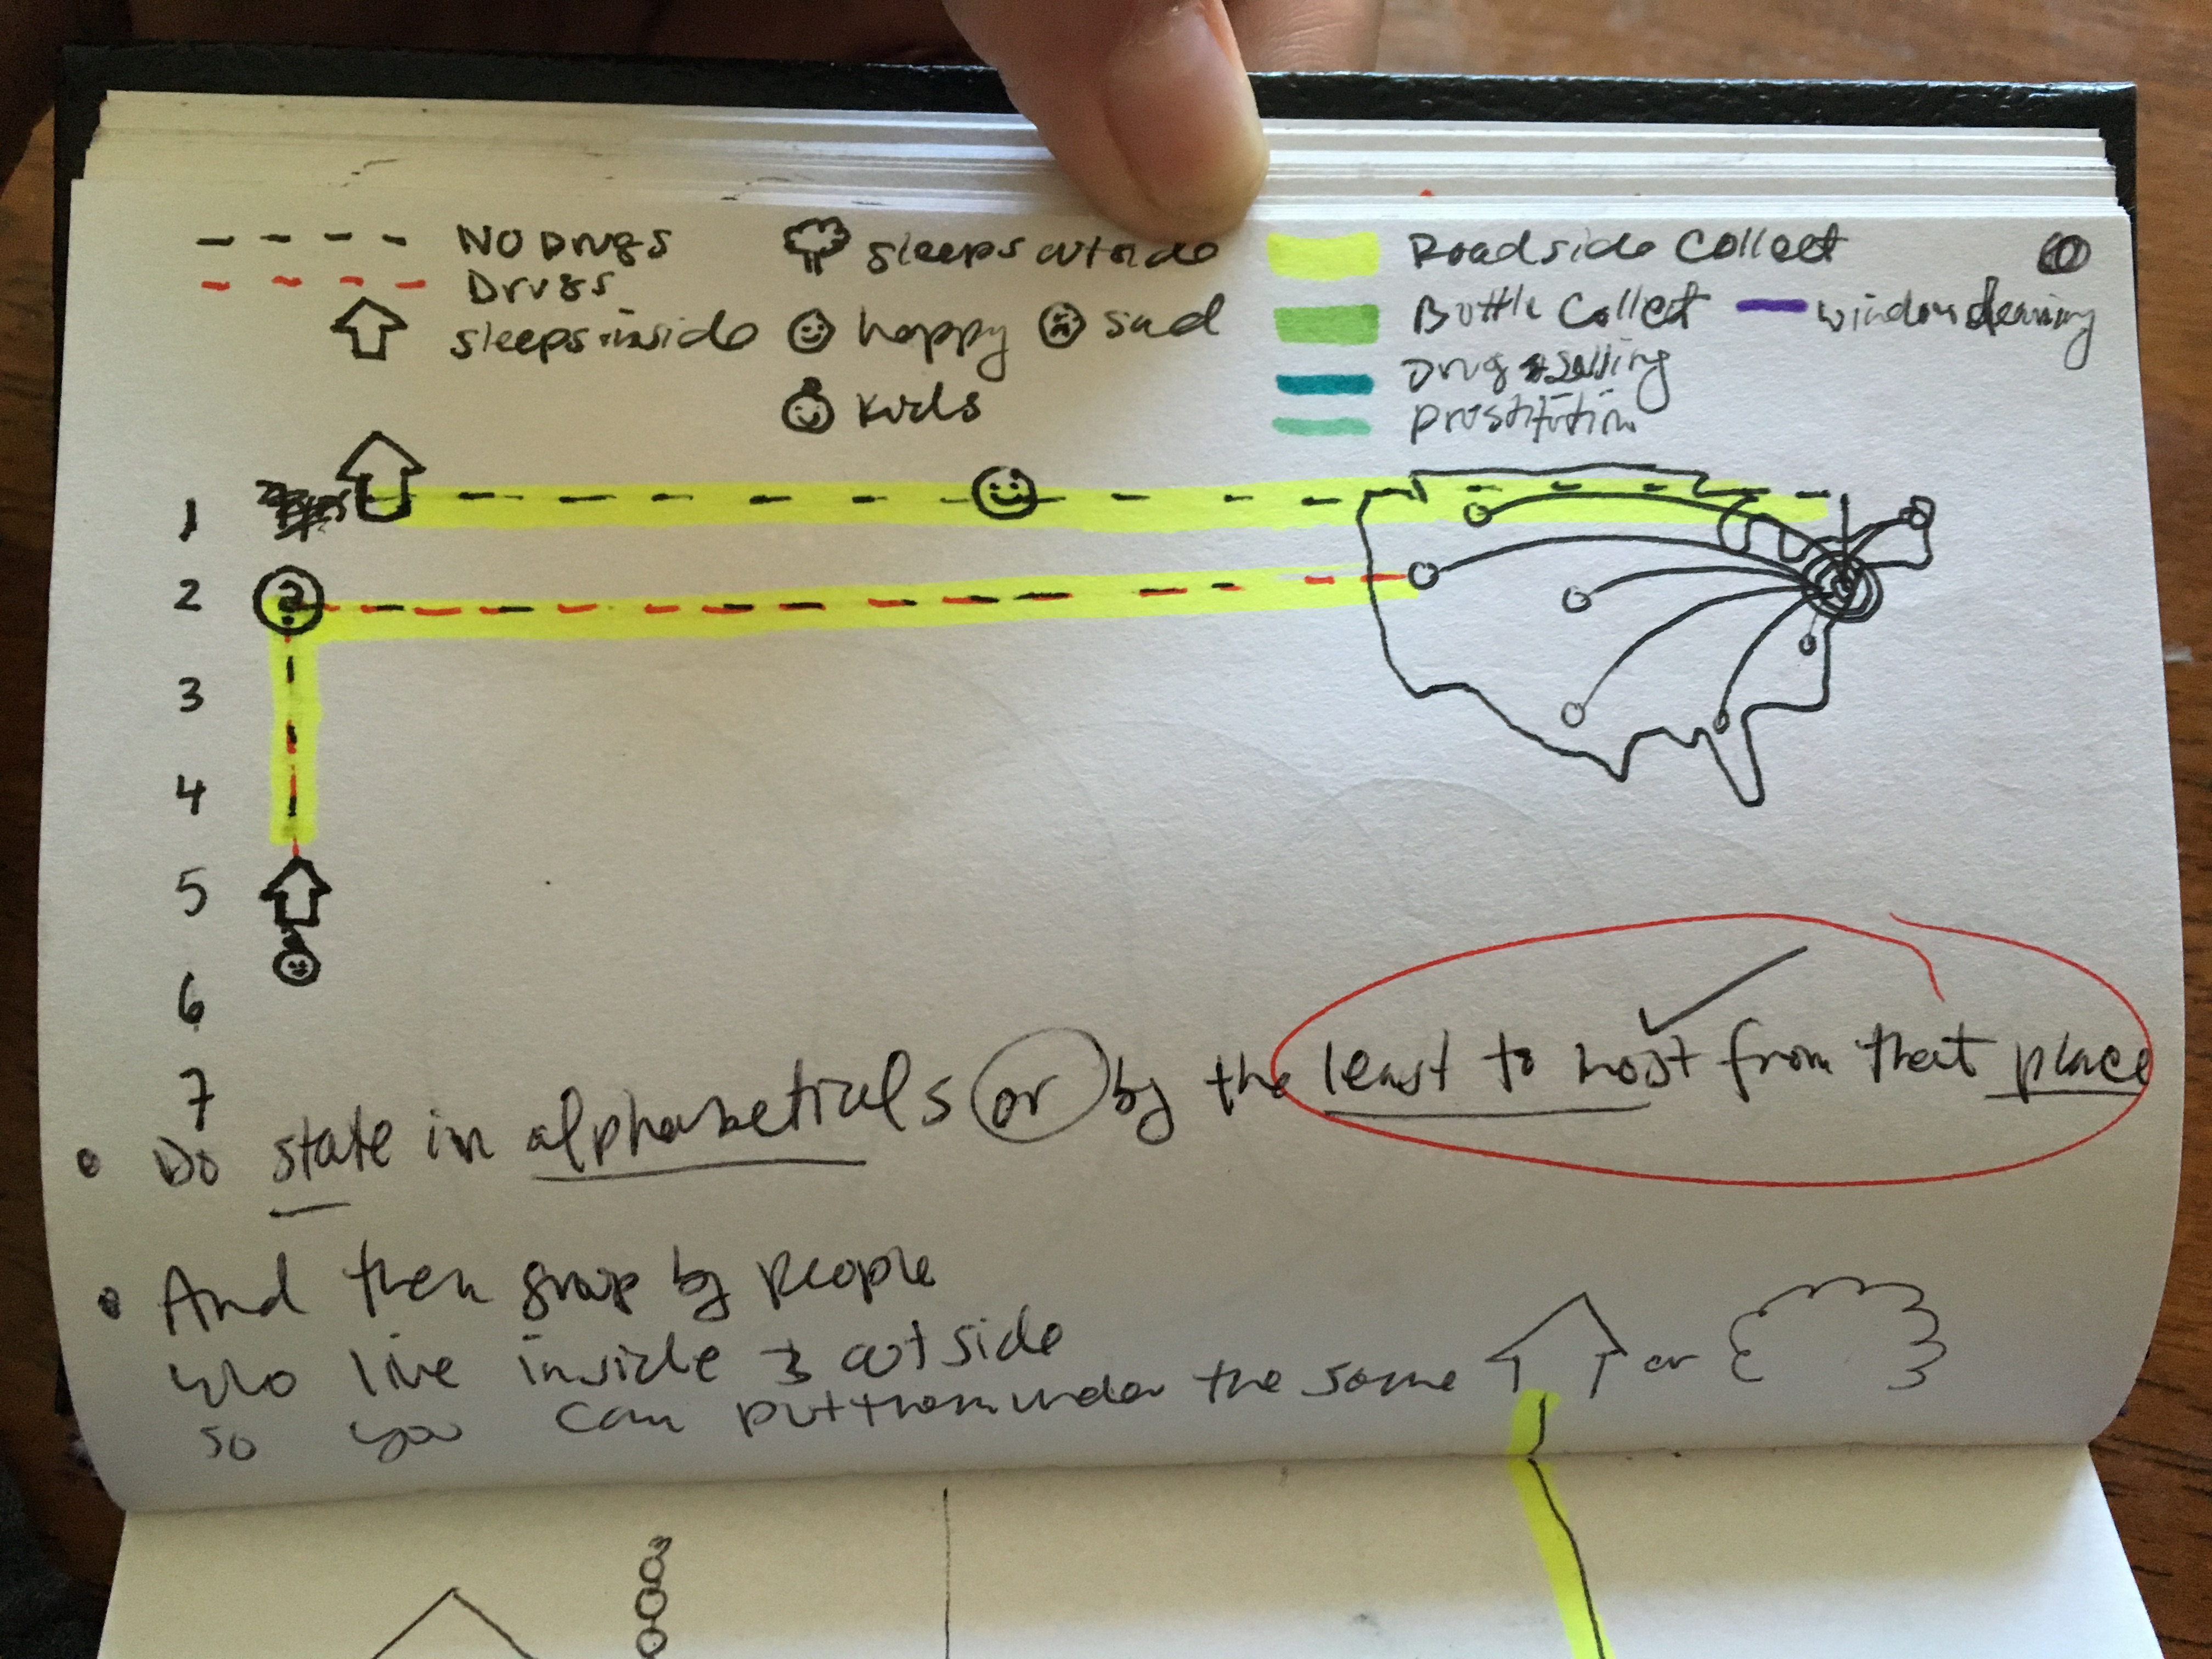 NO Drugs
Drugs
sleeps inside
sleeps outside
happy
sad
kids
Roadside Collect
Bottle Collect
window cleaning
Drug selling
prostitution
1
2
3
4
5
6
7
?
• Do state in alphabeticals or by the least to most from that place
• And then group by people
who live inside & outside
so you can put them under the same or